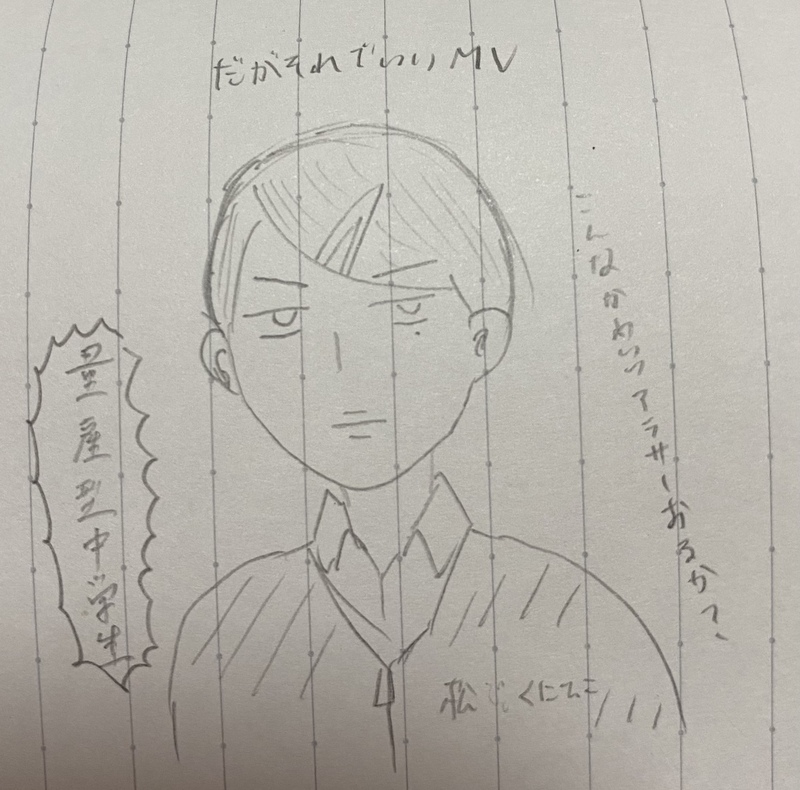 だがそれでいいMV
こんなかわいいアラサーおるかって
量産型中学生
松
くにひこ